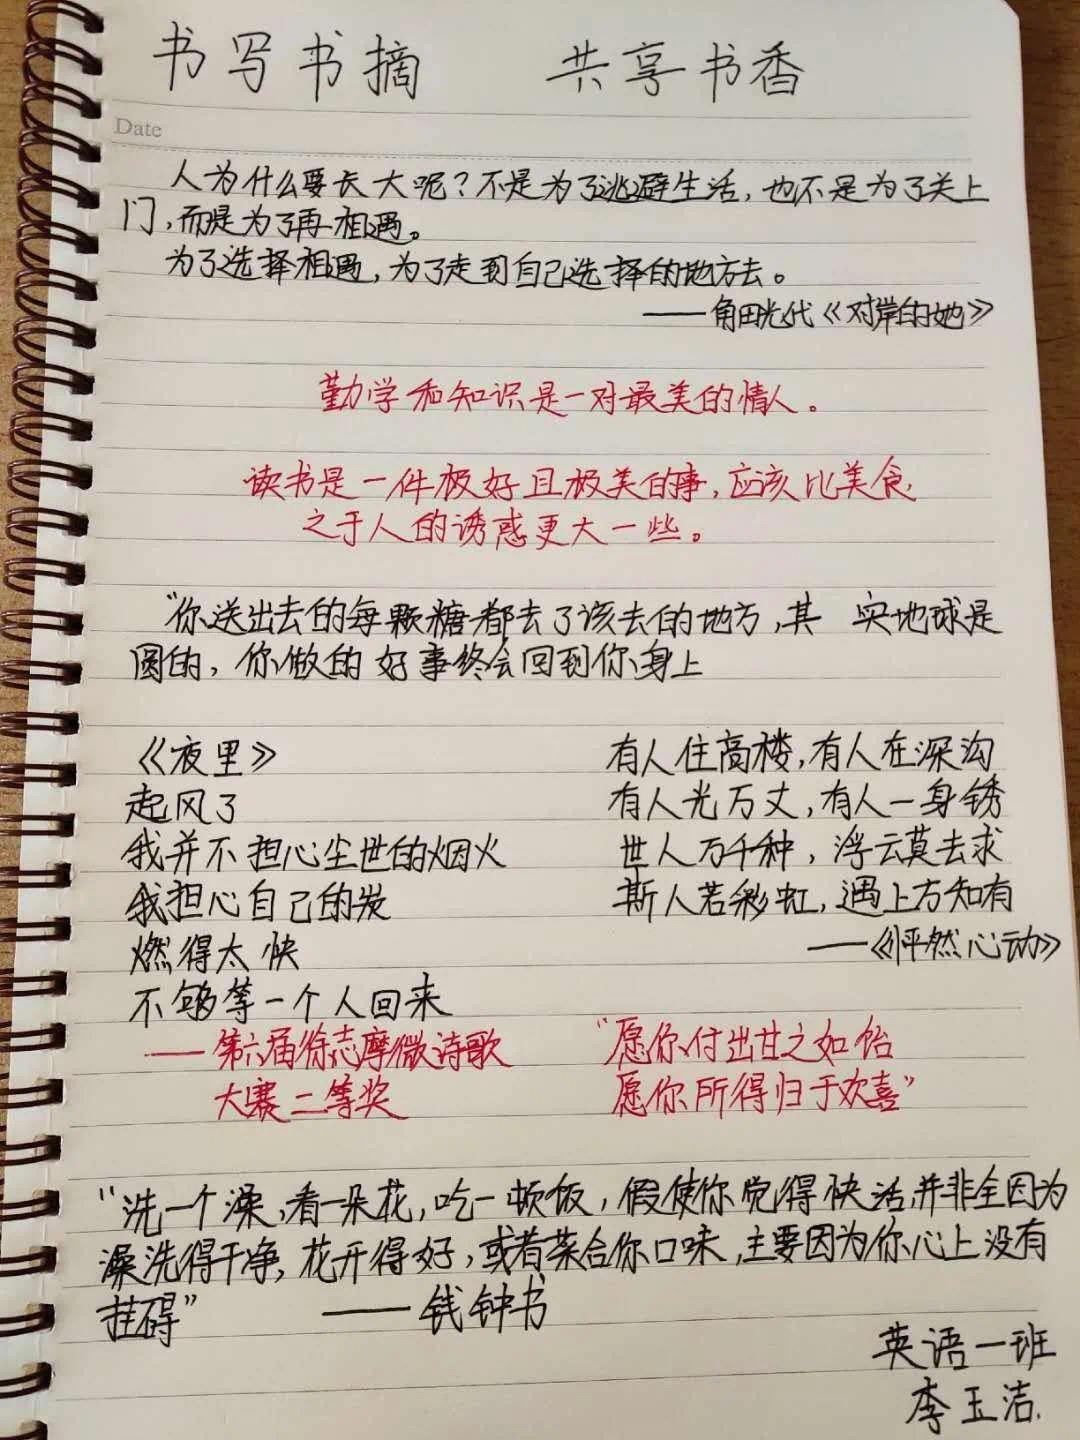 书写书摘 共享书香
Date
人为什么要长大呢？不是为了逃避生活，也不是为了关上
门，而是为了再相遇。
为了选择相遇，为了走到自己选择的地方去。
——角田光代《对岸的她》
勤学和知识是一对最美的情人。
读书是一件极好且极美的事，应该比美食
之于人的诱惑更大一些。
“你送出去的每颗糖都去了该去的地方，其 实地球是
圆的，你做的好事终会回到你身上
《夜里》
起风了
我并不担心尘世的烟火
我担心自己的发
燃得太快
不够等一个人回来
——第六届徐志摩微诗歌
大赛二等奖
有人住高楼，有人在深沟
有人光万丈，有人一身锈
世人万千种，浮云莫去求
斯人若彩虹，遇上方知有
——《怦然心动》
“愿你付出甘之如饴
愿你所得归于欢喜”
“洗一个澡，看一朵花，吃一顿饭，假使你觉得快活并非全因为
澡洗得干净，花开得好，或者菜合你口味，主要因为你心上没有
挂碍” ——钱钟书
英语一班
李玉洁.